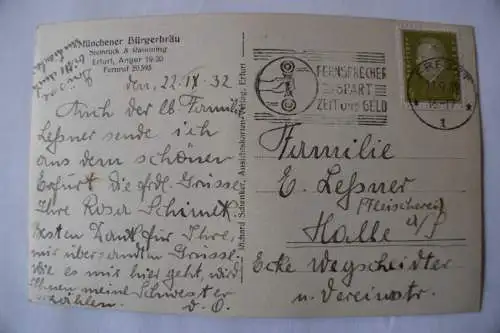 Münchener Bürgerbräu
Steinrück &
Erfurt, Anger 19-20
Fernruf 20593
22.IX.32
Auch der lb Familie
Leßner sende ich
aus dem schönen
Erfurt die frdl. Grüsse
Ihre Rosa Schimek.
Besten Dank für Ihre,
mir übersandten Grüsse.
Wie es mir hier geht, wird
Ihnen meine Schwester
erzählen. D. O.
Richard Schenker, Ansichtskarten-Verlag, Erfurt
FERNSPRECHER
SPART
ZEIT UND GELD
1
Familie
E. Leßner
Fleischerei
Halle a/S
Ecke Wegscheidter
u. Vereinsstr.